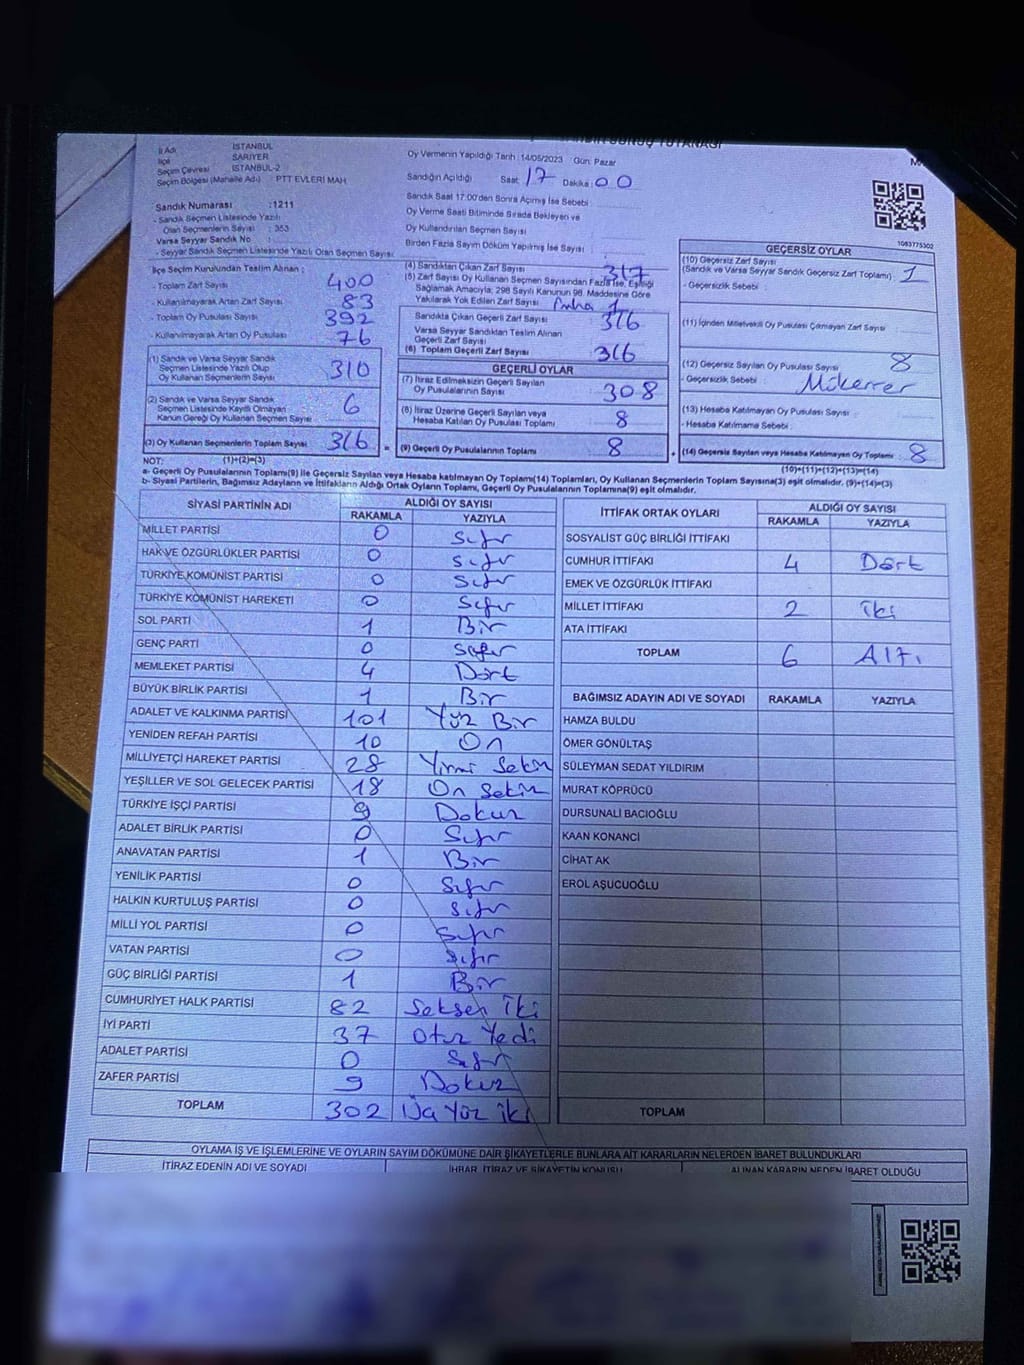 SONUÇ TUTANAĞI
İl Adı : İSTANBUL
İlçe : SARIYER
Seçim Çevresi : İSTANBUL-2
Seçim Bölgesi (Mahalle Adı) : PTT EVLERİ MAH
Sandık Numarası : 1211
- Sandık Seçmen Listesinde Yazılı
Olan Seçmenlerin Sayısı : 353
Varsa Seyyar Sandık No :
- Seyyar Sandık Seçmen Listesinde Yazılı Olan Seçmen Sayısı
Oy Vermenin Yapıldığı Tarih : 14/05/2023 Gün: Pazar
Sandığın Açıldığı Saat: 17 Dakika: 00
Sandık Saat 17:00'den Sonra Açılmış İse Sebebi
Oy Verme Saati Bitiminde Sırada Bekleyen ve
Oy Kullandırılan Seçmen Sayısı
Birden Fazla Sayım Döküm Yapılmış İse Sayısı
1083775302
İlçe Seçim Kurulundan Teslim Alınan :
- Toplam Zarf Sayısı 400
- Kullanılmayarak Artan Zarf Sayısı 83
- Toplam Oy Pusulası Sayısı 392
- Kullanılmayarak Artan Oy Pusulası 76
(1) Sandık ve Varsa Seyyar Sandık
Seçmen Listesinde Yazılı Olup
Oy Kullanan Seçmenlerin Sayısı 310
(2) Sandık ve Varsa Seyyar Sandık
Seçmen Listesinde Kayıtlı Olmayan
Kanun Gereği Oy Kullanan Seçmen Sayısı 6
(3) Oy Kullanan Seçmenlerin Toplam Sayısı 316
(4) Sandıktan Çıkan Zarf Sayısı 317
(5) Zarf Sayısı Oy Kullanan Seçmen Sayısından Fazla İse, Eşitliği
Sağlamak Amacıyla; 298 Sayılı Kanunun 98. Maddesine Göre
Yakılarak Yok Edilen Zarf Sayısı İmha 1
Sandıkta Çıkan Geçerli Zarf Sayısı 316
Varsa Seyyar Sandıktan Teslim Alınan
Geçerli Zarf Sayısı
(6) Toplam Geçerli Zarf Sayısı 316
GEÇERLİ OYLAR
(7) İtiraz Edilmeksizin Geçerli Sayılan
Oy Pusulalarının Sayısı 308
(8) İtiraz Üzerine Geçerli Sayılan veya
Hesaba Katılan Oy Pusulası Toplamı 8
= (9) Geçerli Oy Pusulalarının Toplamı 8
GEÇERSİZ OYLAR
(10) Geçersiz Zarf Sayısı
(Sandık ve Varsa Seyyar Sandık Geçersiz Zarf Toplamı) : 1
- Geçersizlik Sebebi :
(11) İçinden Milletvekili Oy Pusulası Çıkmayan Zarf Sayısı :
(12) Geçersiz Sayılan Oy Pusulası Sayısı 8
- Geçersizlik Sebebi : Mükerrer
(13) Hesaba Katılmayan Oy Pusulası Sayısı :
- Hesaba Katılmama Sebebi :
+ (14) Geçersiz Sayılan veya Hesaba Katılmayan Oy Toplamı : 8
NOT: (1)+(2)=(3) (10)+(11)+(12)+(13)=(14)
a- Geçerli Oy Pusulalarının Toplamı(9) ile Geçersiz Sayılan veya Hesaba katılmayan Oy Toplamı(14) Toplamları, Oy Kullanan Seçmenlerin Toplam Sayısına(3) eşit olmalıdır. (9)+(14)=(3)
b- Siyasi Partilerin, Bağımsız Adayların ve İttifakların Aldığı Ortak Oyların Toplamı, Geçerli Oy Pusulalarının Toplamına(9) eşit olmalıdır.
SİYASİ PARTİNİN ADI ALDIĞI OY SAYISI
RAKAMLA YAZIYLA
MİLLET PARTİSİ 0 Sıfır
HAK VE ÖZGÜRLÜKLER PARTİSİ 0 Sıfır
TÜRKİYE KOMÜNİST PARTİSİ 0 Sıfır
TÜRKİYE KOMÜNİST HAREKETİ 0 Sıfır
SOL PARTİ 1 Bir
GENÇ PARTİ 0 Sıfır
MEMLEKET PARTİSİ 4 Dört
BÜYÜK BİRLİK PARTİSİ 1 Bir
ADALET VE KALKINMA PARTİSİ 101 Yüz Bir
YENİDEN REFAH PARTİSİ 10 On
MİLLİYETÇİ HAREKET PARTİSİ 28 Yirmi Sekiz
YEŞİLLER VE SOL GELECEK PARTİSİ 18 On Sekiz
TÜRKİYE İŞÇİ PARTİSİ 9 Dokuz
ADALET BİRLİK PARTİSİ 0 Sıfır
ANAVATAN PARTİSİ 1 Bir
YENİLİK PARTİSİ 0 Sıfır
HALKIN KURTULUŞ PARTİSİ 0 Sıfır
MİLLİ YOL PARTİSİ 0 Sıfır
VATAN PARTİSİ 0 Sıfır
GÜÇ BİRLİĞİ PARTİSİ 1 Bir
CUMHURİYET HALK PARTİSİ 82 Seksen İki
İYİ PARTİ 37 Otuz Yedi
ADALET PARTİSİ 0 Sıfır
ZAFER PARTİSİ 9 Dokuz
TOPLAM 302 Üç Yüz iki
İTTİFAK ORTAK OYLARI ALDIĞI OY SAYISI
RAKAMLA YAZIYLA
SOSYALİST GÜÇ BİRLİĞİ İTTİFAKI
CUMHUR İTTİFAKI 4 Dört
EMEK VE ÖZGÜRLÜK İTTİFAKI
MİLLET İTTİFAKI 2 iki
ATA İTTİFAKI
TOPLAM 6 Altı
BAĞIMSIZ ADAYIN ADI VE SOYADI RAKAMLA YAZIYLA
HAMZA BULDU
ÖMER GÖNÜLTAŞ
SÜLEYMAN SEDAT YILDIRIM
MURAT KÖPRÜCÜ
DURSUNALİ BACIOĞLU
KAAN KONANCİ
CİHAT AK
EROL AŞUCUOĞLU
TOPLAM
OYLAMA İŞ VE İŞLEMLERİNE VE OYLARIN SAYIM DÖKÜMÜNE DAİR ŞİKAYETLERLE BUNLARA AİT KARARLARIN NELERDEN İBARET BULUNDUKLARI
İTİRAZ EDENİN ADI VE SOYADI İHBAR, İTİRAZ VE ŞİKAYETİN KONUSU ALINAN KARARIN NEDEN İBARET OLDUĞU